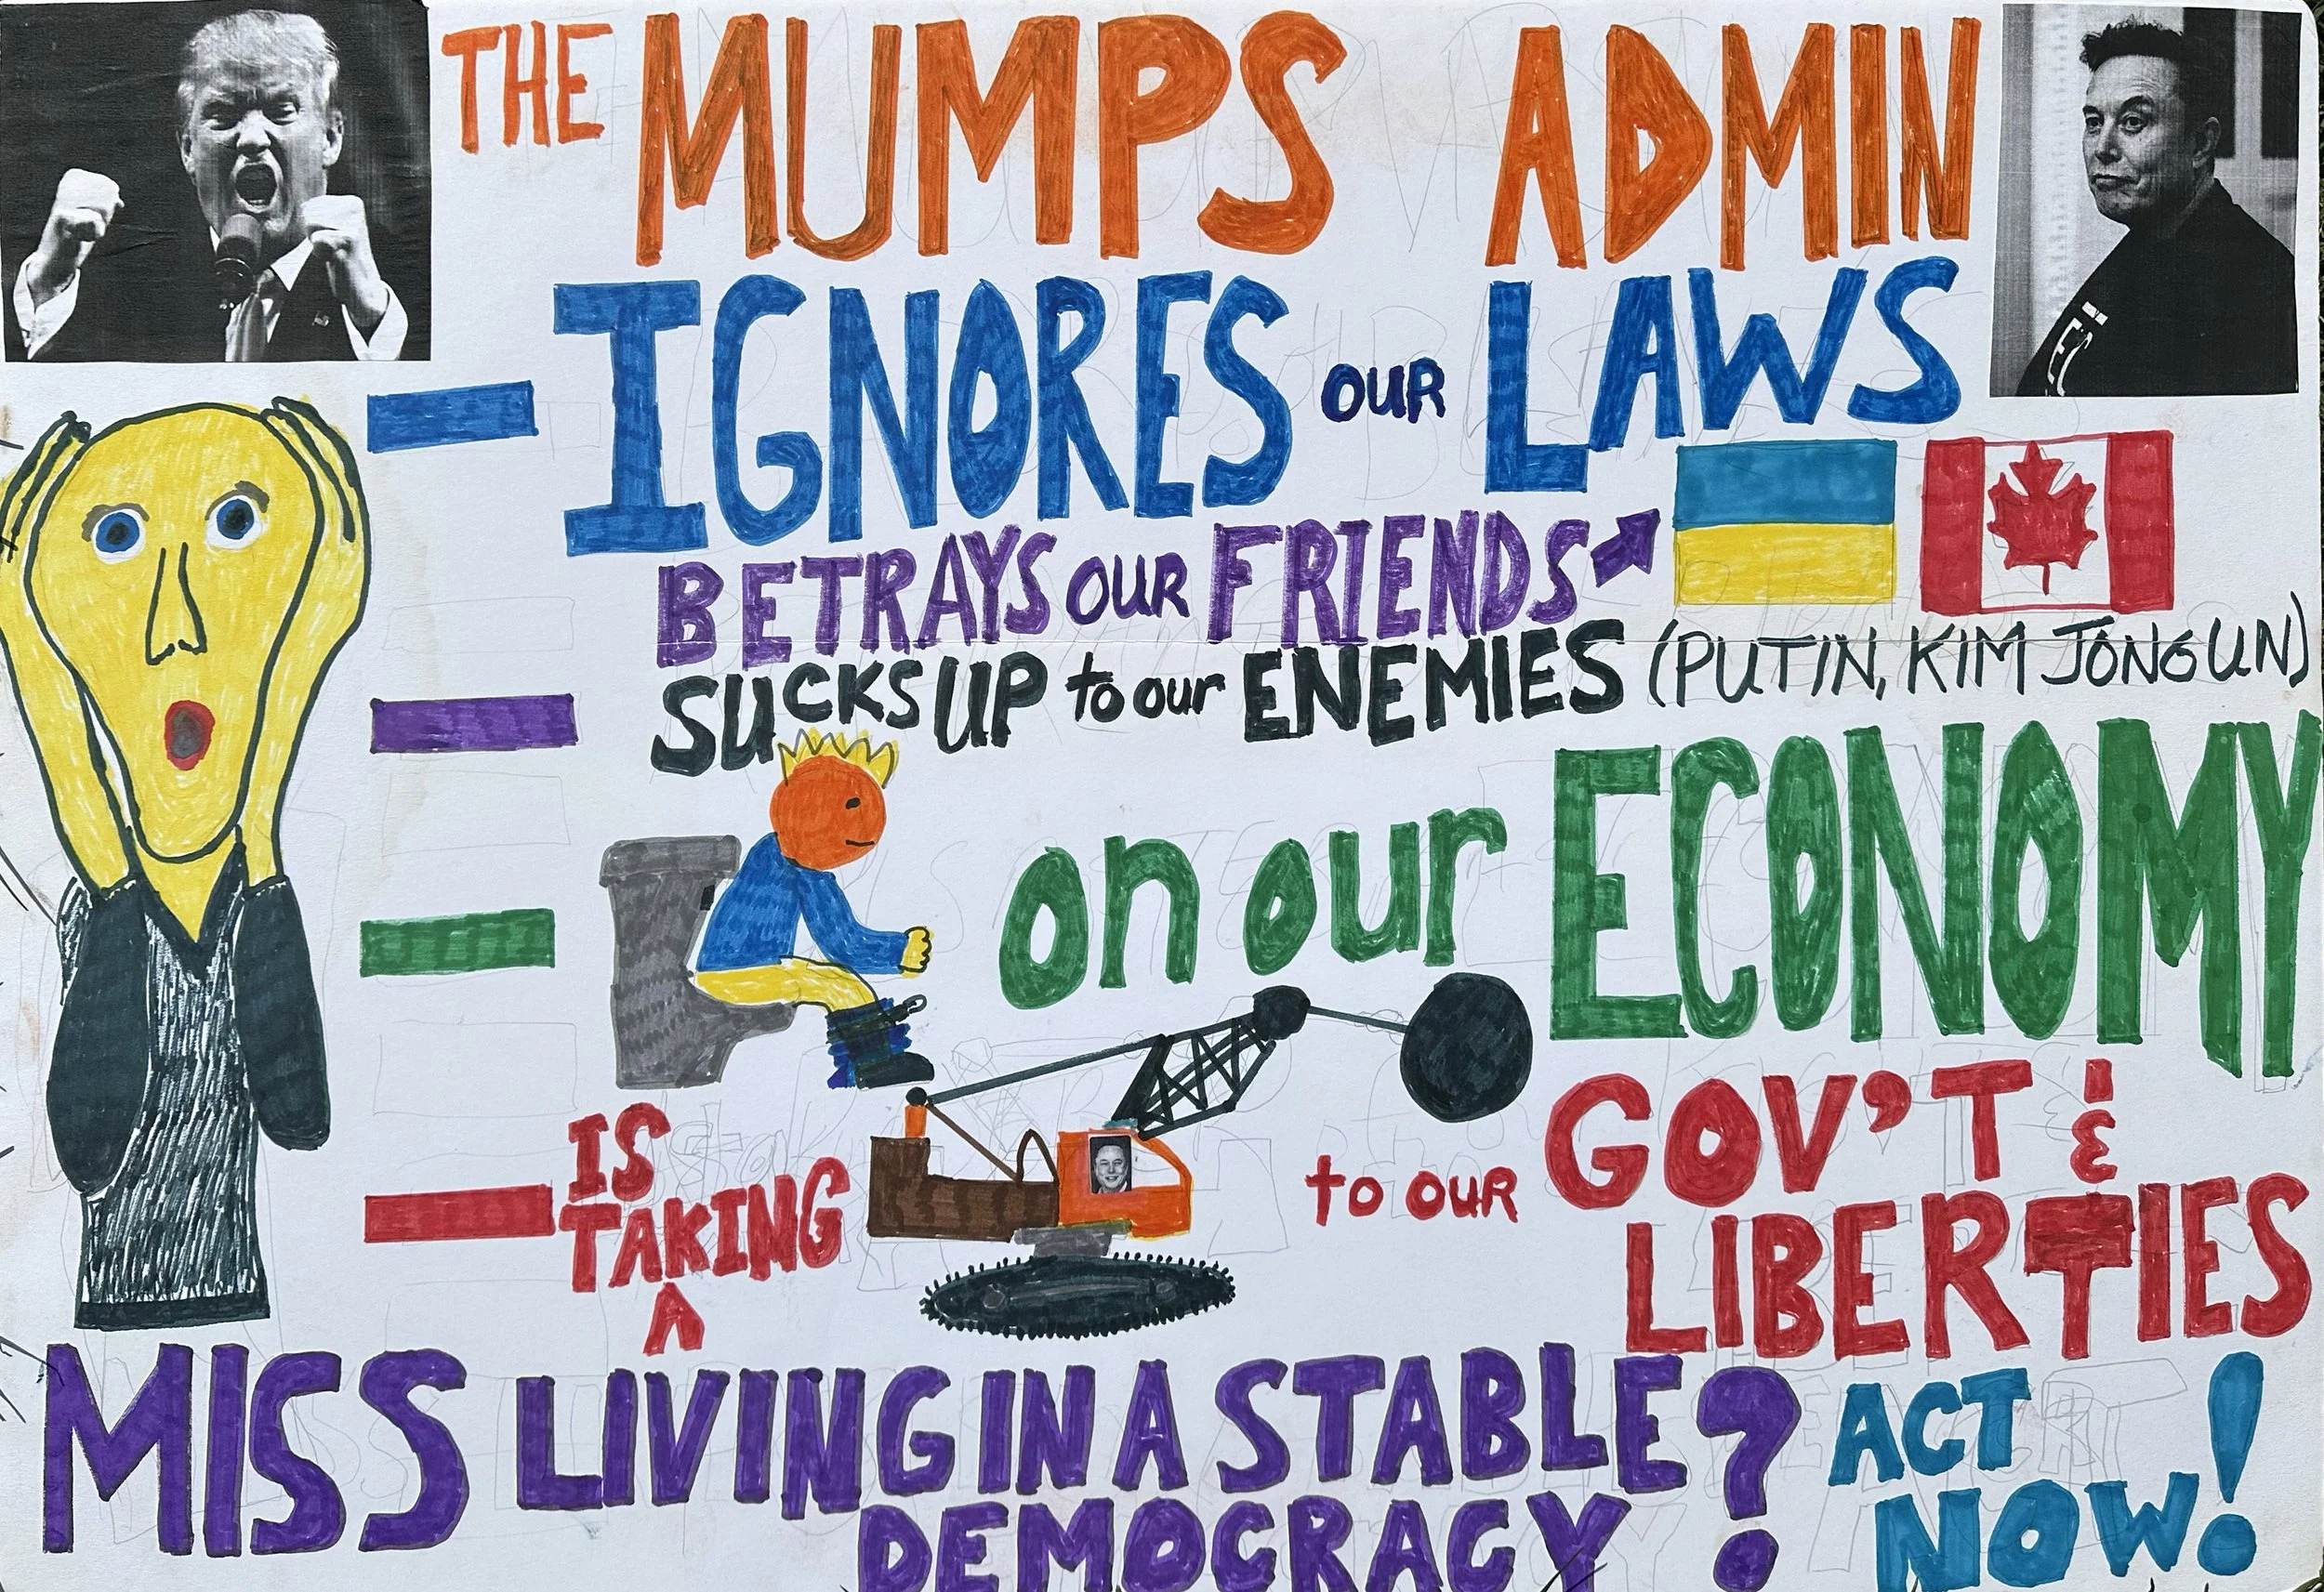 THE MUMPS ADMIN
- IGNORES OUR LAWS
- BETRAYS OUR FRIENDS
SUCKS UP to our ENEMIES (PUTIN, KIM JONG UN)
- on our ECONOMY
- IS TAKING A to OUR GOV'T & LIBERTIES
MISS LIVING IN A STABLE DEMOCRACY? ACT NOW!